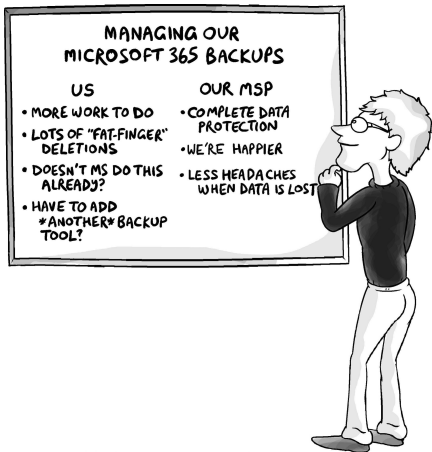 MANAGING OUR
MICROSOFT 365 BACKUPS
US
• MORE WORK TO DO
• LOTS OF "FAT-FINGER"
DELETIONS
• DOESN'T MS DO THIS
ALREADY?
• HAVE TO ADD
*ANOTHER* BACKUP
TOOL?
OUR MSP
• COMPLETE DATA
PROTECTION
• WE'RE HAPPIER
• LESS HEADACHES
WHEN DATA IS LOST